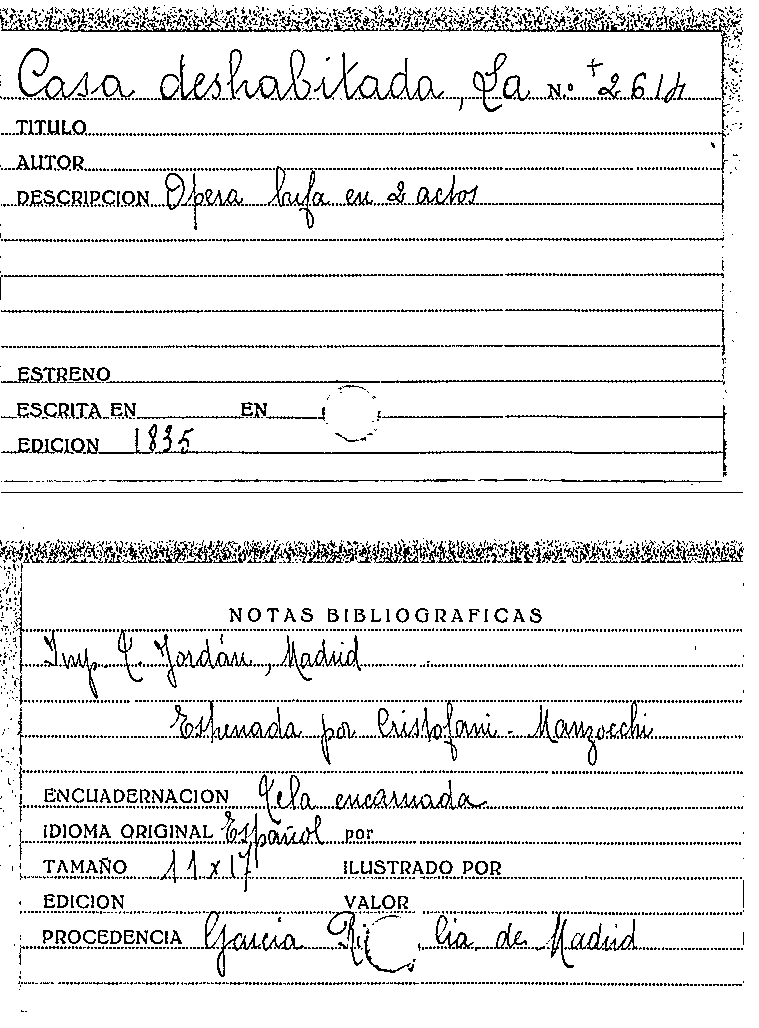 Casa deshabitada, La N.º +2614
TITULO
AUTOR
DESCRIPCION Opera bufa en 2 actos
ESTRENO
ESCRITA EN EN
EDICION 1835
NOTAS BIBLIOGRAFICAS
Imp. T. Jordán, Madrid
Estrenada por Cristofani - Manzocchi
ENCUADERNACION Tela encarnada
IDIOMA ORIGINAL Español por
TAMAÑO 11 x 17 ILUSTRADO POR
EDICION VALOR
PROCEDENCIA Garcia Rico, Cia de Madrid